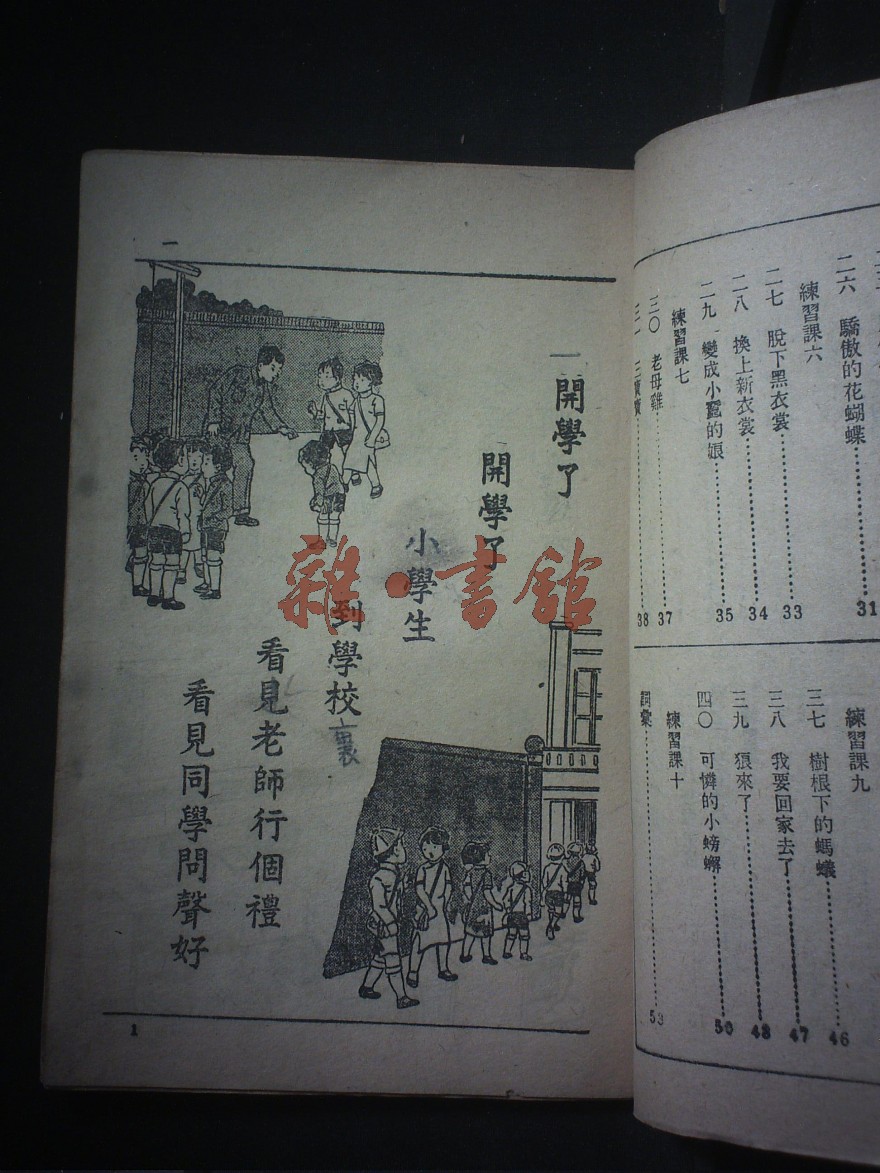 二六 驕傲的花蝴蝶 31
練習課六
二七 脫下黑衣裳 33
二八 換上新衣裳 34
二九 變成小蠶的娘 35
練習課七
三〇 老母雞 37
38
練習課九 46
三七 樹根下的螞蟻 47
三八 我要回家去了 48
三九 狼來了 50
四〇 可憐的小螃蟹
練習課十
詞彙 53
一
一 開學了
開學了
小學生
到學校裏
看見老師行個禮
看見同學問聲好
1
雜·書館